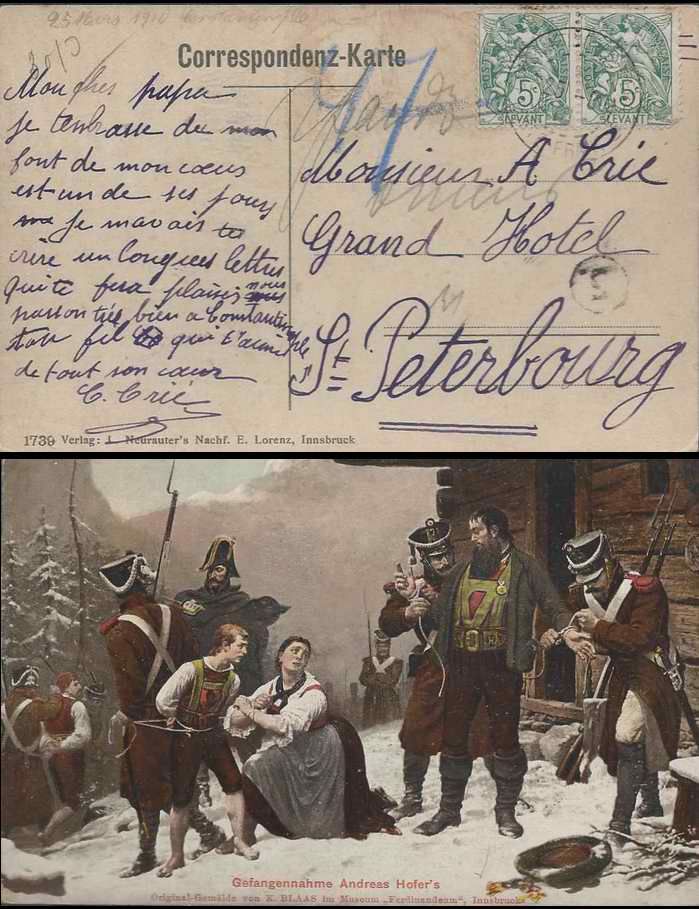 25 Mars 1910 Constantinople
Correspondenz-Karte
5c
LEVANT
5c
LEVANT
47
Mon cher papa
je tenbrasse du mon
font de mon cœur
est un de ses jours
je mavais
crire un longues lettres
qui te fera plaisir nous
passon très bien a Constantinople
ton fil qui t'aime
de tout son cœur
C. Crié
Monsieur A Crié
Grand Hotel
St Peterbourg
1739 Verlag: J. Neurauter's Nachf. E. Lorenz, Innsbruck
Gefangennahme Andreas Hofer's
Original-Gemälde von K. BLAAS im Museum „Ferdinandeum", Innsbruck